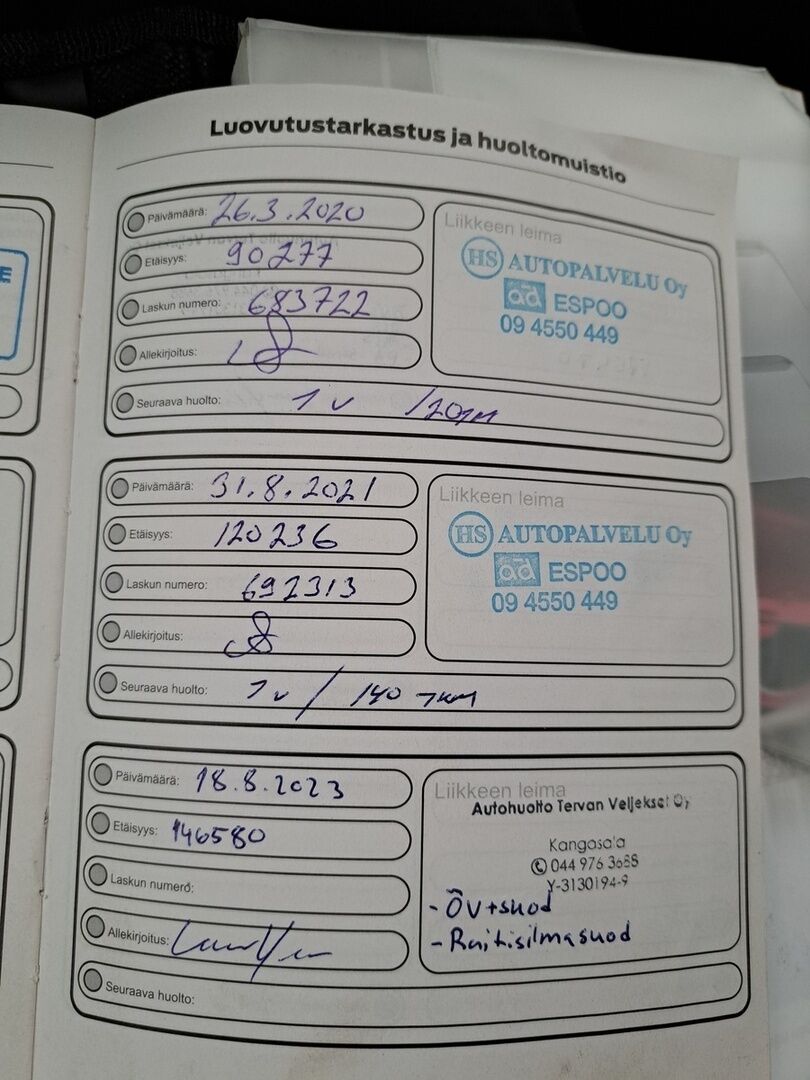 Luovutustarkastus ja huoltomuistio
Päivämäärä: 26.3.2020
Etäisyys: 90277
Laskun numero: 683722
Allekirjoitus:
Seuraava huolto: 1 v /
Liikkeen leima
HS AUTOPALVELU Oy
ad ESPOO
09 4550 449
Päivämäärä: 31.8.2021
Etäisyys: 120236
Laskun numero: 692313
Allekirjoitus:
Seuraava huolto: 1v / 140 TKM
Liikkeen leima
HS AUTOPALVELU Oy
ad ESPOO
09 4550 449
Päivämäärä: 18.8.2023
Etäisyys: 146580
Laskun numero:
Allekirjoitus:
Seuraava huolto:
Liikkeen leima
Autohuolto Tervan Veljekset Oy
Kangasala
044 976 3688
Y-3130194-9
- ÖV+suod
- Raitisilmasuod
E